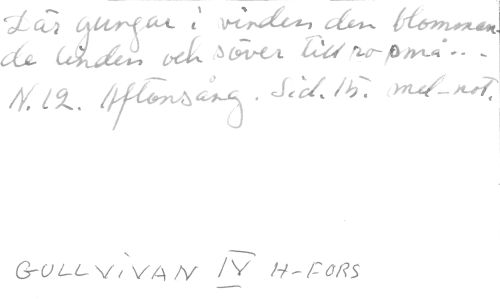 Där gungar i vinden den blomman-
de linden och söver till ro små...
N. 12. Aftonsång. Sid. 15. mel-not.
GULLVIVAN IV H-FORS